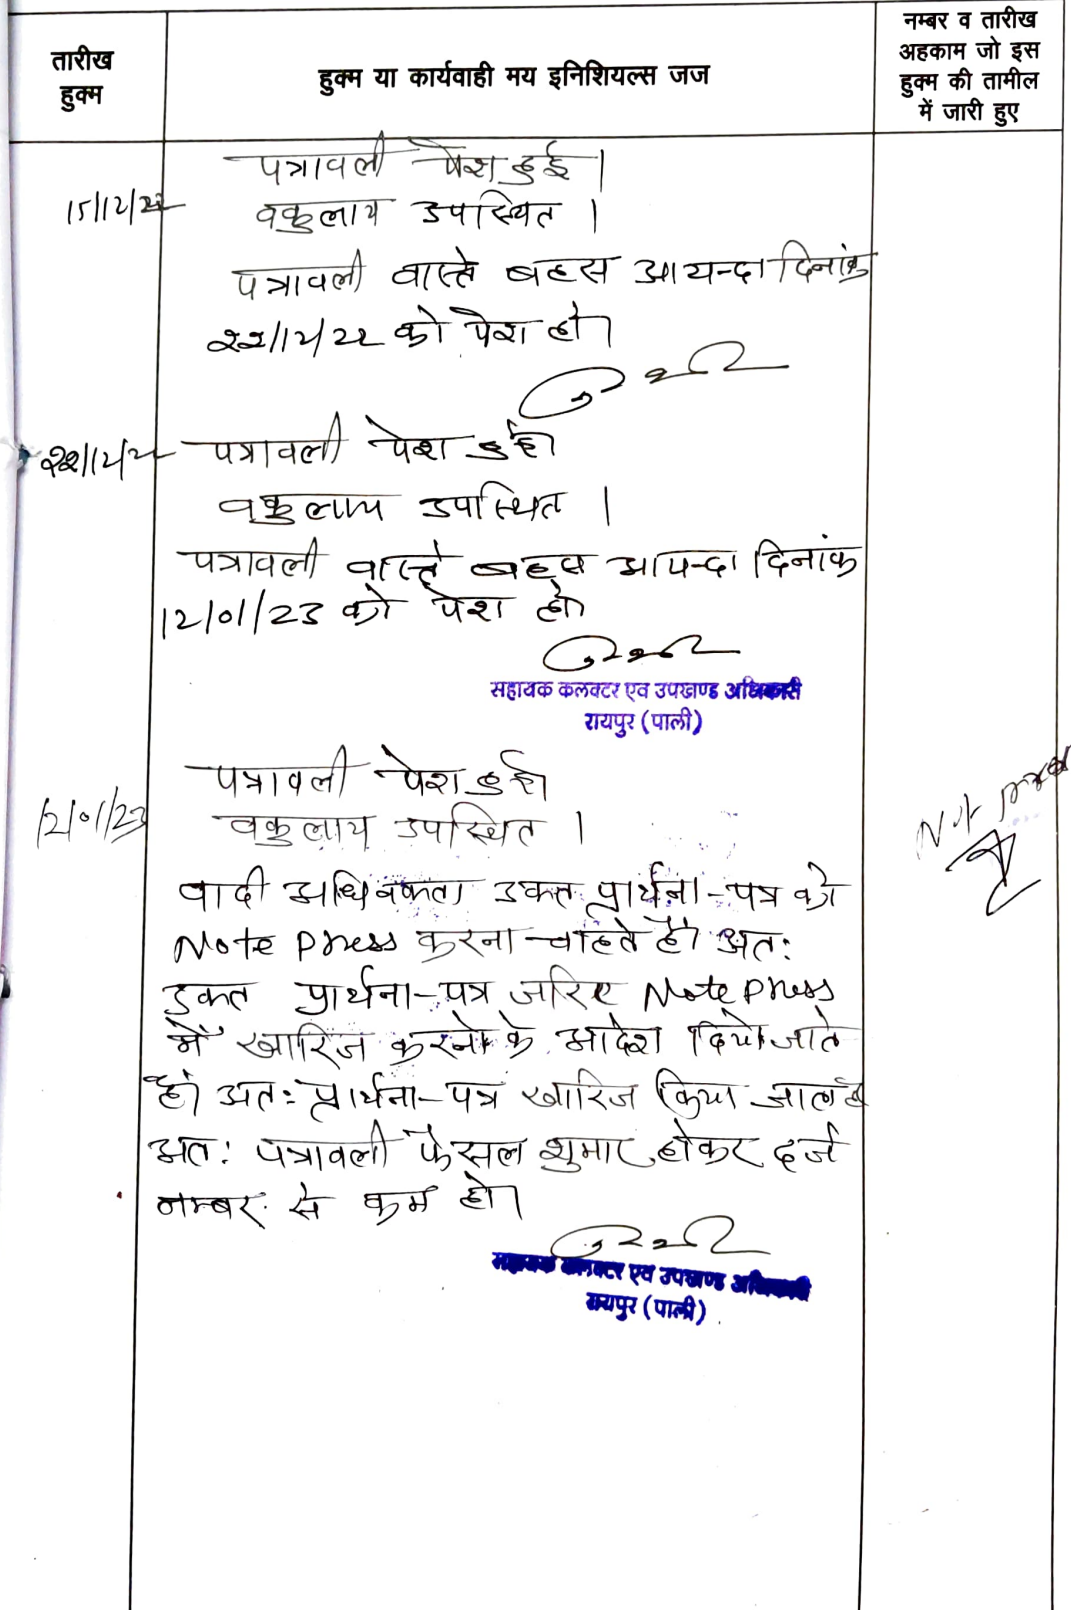 तारीख
हुक्म
हुक्म या कार्यवाही मय इनिशियल्स जज
नम्बर व तारीख
अहकाम जो इस
हुक्म की तामील
में जारी हुए
पत्रावली पेश हुई।
15/12/22
वकुलाय उपस्थित ।
पत्रावली वास्ते बहस आयन्दा दिनांक
22/12/22 को पेश हो।
22/12/22 पत्रावली पेश हुई।
वकुलाय उपस्थित ।
पत्रावली वास्ते बहस आयन्दा दिनांक
12/01/23 को पेश हो।
सहायक कलक्टर एवं उपखण्ड अधिकारी
रायपुर (पाली)
पत्रावली पेश हुई।
12/01/23
वकुलाय उपस्थित ।
Not press
वादी अधिवक्ता उक्त प्रार्थना-पत्र को
Note press करना चाहते है। अतः
उक्त प्रार्थना-पत्र जरिए Note press
में खारिज करने के आदेश दिये जाते
है। अतः प्रार्थना-पत्र खारिज किया जाता है
अतः पत्रावली फैसल शुमार होकर दर्ज
नम्बर से कम हो।
सहायक कलक्टर एवं उपखण्ड अधिकारी
रायपुर (पाली)